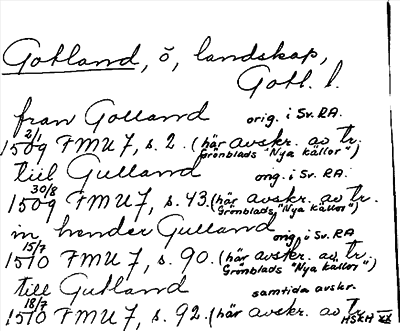 Gotland, ö, landskap,
Gotl. l.
fran Golland orig. i Sv. RA.
2/1
1509 FMU 7, s. 2. (här avskr. av tr.
Grönblads "Nya källor")
till Gulland orig. i Sv. RA.
30/8
1509 FMU 7, s. 43. (här avskr. av tr.
Grönblads "Nya källor")
in hender Gulland orig. i Sv. RA
15/7
1510 FMU 7, s. 90. (här avskr. av tr.
Grönblads "Nya källor")
till Gutland samtida avskr.
18/7
1510 FMU 7, s. 92. (här avskr. av tr.
HSKH